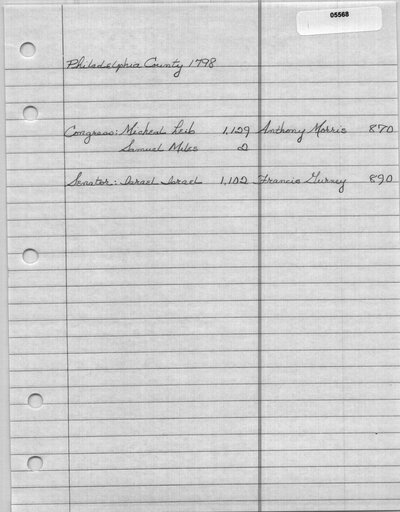 05568
Philadelphia County 1798
Congress: Micheal Leib 1,129 Anthony Morris 870
Samuel Miles 2
Senator: Israel Israel 1,102 Francis Gurney 890